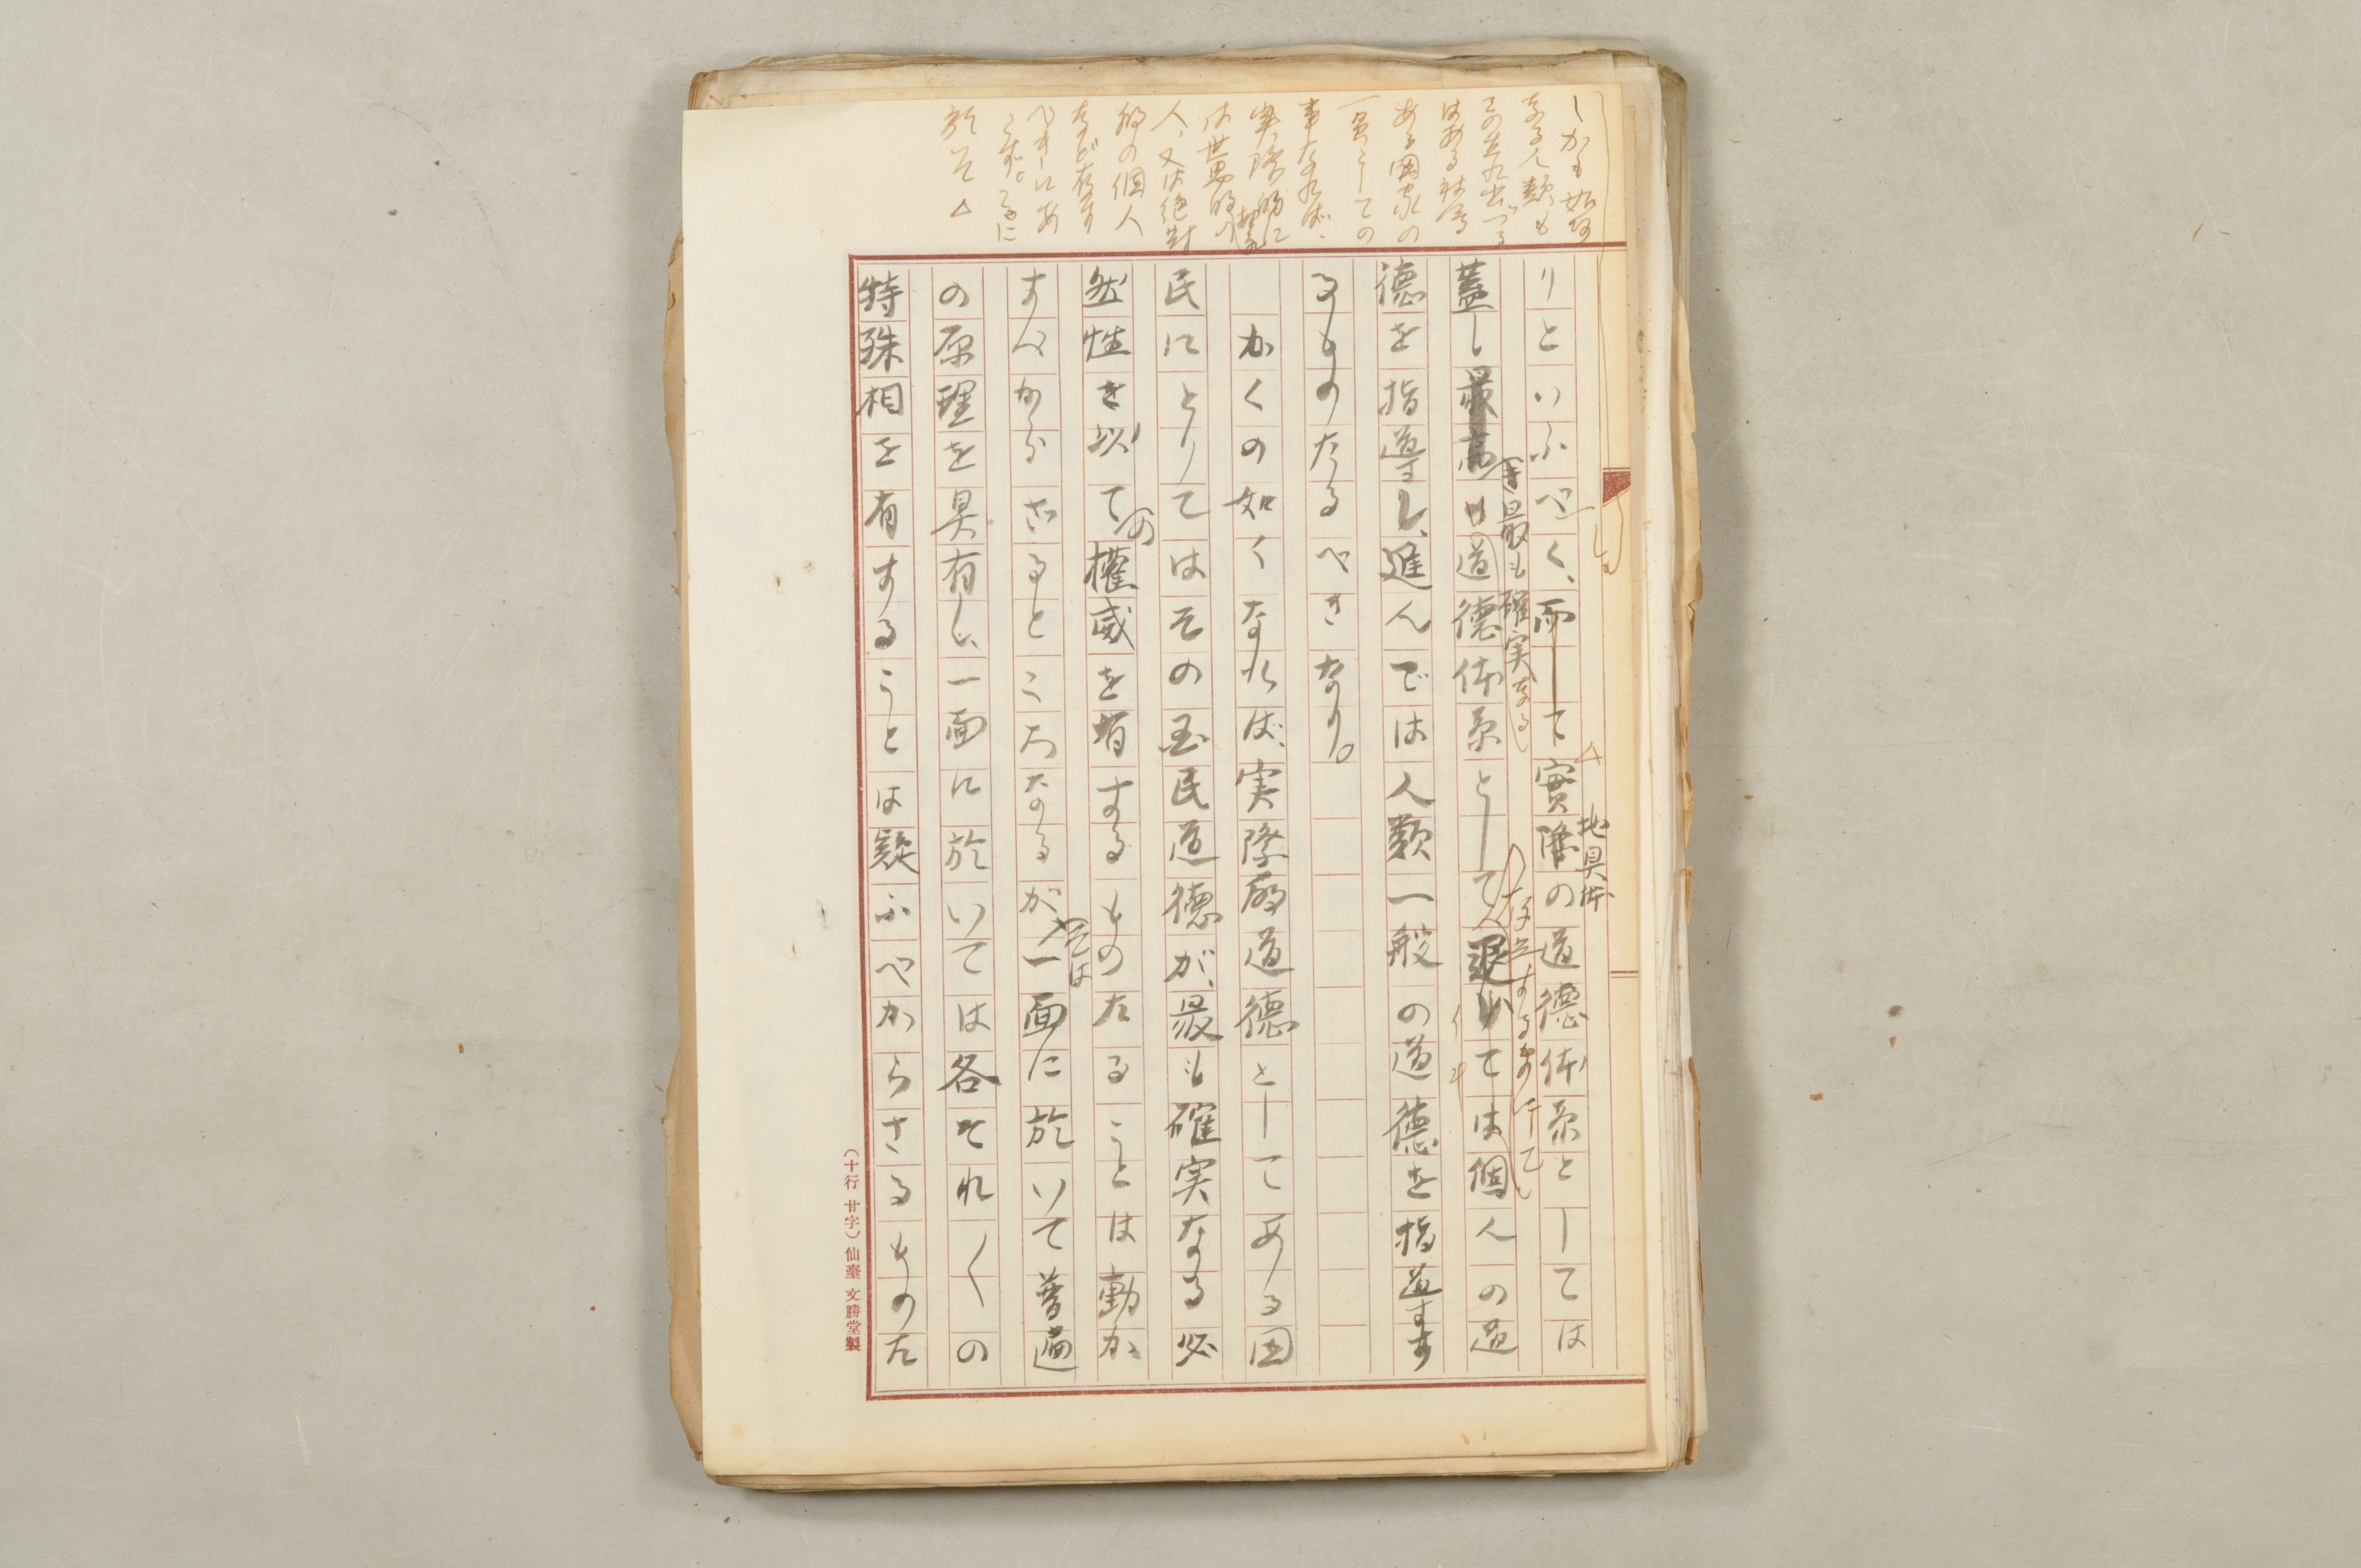 しかも如何
なる人類も
その生れ出づる
はある社会
ある國家の
一員としての
事なれば、
実際的に
は世界的
人、又は絶対
的の個人
など存す
べきにあ
らず。こゝに
於て△
りといふべく、而して實際の道德体系としては
地具体
蓋し最高の道德体系として、退いては個人の道
最も確実なる
存立するものにして
德を指導し、進んでは人類一般の道德を指導す
るものたるべきなり。
かくの如くなれば、実際的道德としてある国
民にとりてはその国民道德が、最も確実なる必
然性を以て權威を有するものたることは動か
の
すべからざるところなるが、一面に於いて普遍
そは
の原理を具有し、一面に於いては各それ〱の
特殊相を有することは疑ふべからざるものた
(十行廿字)仙臺文勝堂製